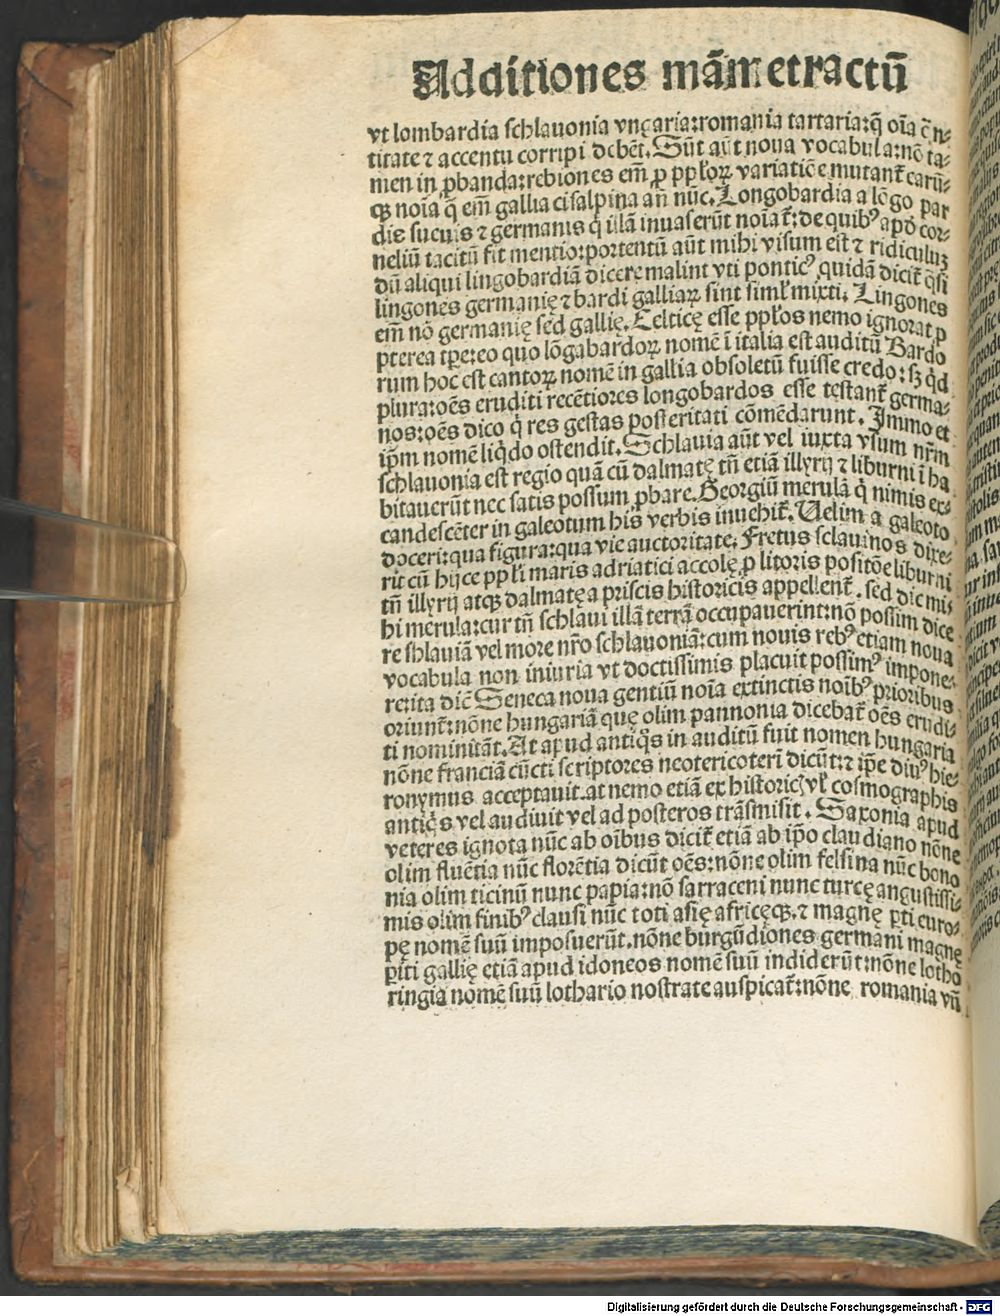 Additiones mãmetractũ
vt lombardia schlauonia vngaria:romania tartaria:q̃ oĩa c̃ n-
titate ⁊ accentu corripi debẽt. Sũt aũt noua vocabula:nõ ta-
men in ꝓbanda:rebiones em̃ ꝓ ppl̃oꝝ variatiõe mutant̃ carũ-
qꝫ noĩa q̃ em̃ gallia cisalpina añ nũc. Longobardia a lõgo par
die sucuis ⁊ germanis q̃ illã inuaserũt noĩat̃:de quibꝰ apđ cor-
neliũ tacitũ fit mentio:portentũ aũt mihi visum est ⁊ ridiculuꝫ
dũ aliqui lingobardiã dicere malint vti ponticꝰ quidã dicit̃ q̃si
lingones germanię ⁊ bardi galliaꝝ sint siml̃ mixti. Lingones
em̃ nõ germanię sed gallię. Celticę esse ppl̃os nemo ignorat ꝓ
pterea tp̃e:eo quo lõgabardoꝝ nomẽ ĩ italia est auditũ Bardo
rum hoc est cantoꝝ nomẽ in gallia obsoletũ fuisse credo:sꝫ qd̃
plura:oẽs eruditi recẽtiores longobardos esse testant̃ germa-
nos:oẽs dico q̃ res gestas posteritati cõmẽdarunt. Immo et
ip̃m nomẽ liq̃do ostendit. Schlauia aũt vel iuxta vsum nr̃m
schlauonia est regio quã cũ dalmatę tñ etiã illyrij ⁊ liburni ĩ ha
bitauerũt nec satis possum ꝓbare. Georgiũ merulã q̃ nimis ex-
candescẽter in galeotum his verbis inuehit̃. Uelim a galeoto
doceri:qua figura:qua vic auctoritate. Fretus sclauinos dixe-
rit cũ hijce ppl̃i maris adriatici accolę ꝓ litoris positõe liburni
tñ illyrij atqꝫ dalmatę a priscis historicis appellent̃. sed dic mi-
hi merula:cur tñ schlaui illã terrã occupauerint:nõ possim dice
re shlauiã vel more nr̃o schlauoniã:cum nouis rebꝰ etiam noua
vocabula non iniuria vt doctissimis placuit possimꝰ impone-
re:ita dic̃ Seneca noua gentiũ noĩa extinctis noĩbꝰ prioribus
oriunt̃:nõne hungariã quę olim pannonia dicebat̃ oẽs erudi-
ti nominãt. At apud antiq̃s in auditũ fuit nomen hungaria
nõne franciã cũcti scriptores neotericoteri dicũt:⁊ ip̃e diuꝰ hie-
ronymus acceptauit.at nemo etiã ex historicis vl̃ cosmographis
antiq̃s vel audiuit vel ad posteros trãsmisit. Saxonia apud
veteres ignota nũc ab oĩbus dicit̃ etiã ab ip̃o claudiano nõne
olim fluẽtia nũc florẽtia dicũt oẽs:nõne olim felsina nũc bono
nia olim ticinũ nunc papia:nõ sarraceni nunc turcę angustissi-
mis olim finibꝰ clausi nũc toti asię africęqꝫ. ⁊ magnę ꝑti euro-
pę nomẽ suũ imposuerũt.nõne burgũdiones germani magnę
ꝑti gallię etiã apud idoneos nomẽ suũ indiderũt:nõne lotho
ringia nomẽ suũ lothario nostrate auspicat̃:nõne romania vñ
Digitalisierung gefördert durch die Deutsche Forschungsgemeinschaft - DFG